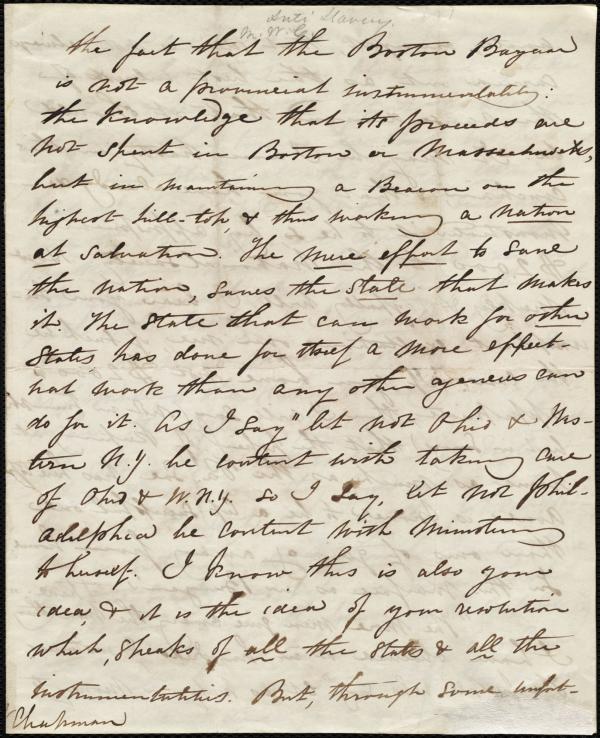 Anti Slavery.
M. W. C.
the fact that the Boston Bazaar
is not a provincial instrumentality:
the knowledge that its proceeds are
not spent in Boston or Massachusetts,
but in maintaining a Beacon on the
highest hill-top, & thus working a nation
al salvation. The mere effort to save
the nation, saves the state that makes
it. The State that can work for other
States, has done for itself a more effect-
ual work than any other agencies can
do for it. As I say "let not Ohio & Wes-
tern N.Y. be content with taking care
of Ohio & W.N.Y. so I say, let not Phil-
adelphia be content with ministering
to herself. I know this is also your
idea, & it is the idea of your resolution
which, speaks of all the States & all the
instrumentalities. But, through some unfort-
Chapman